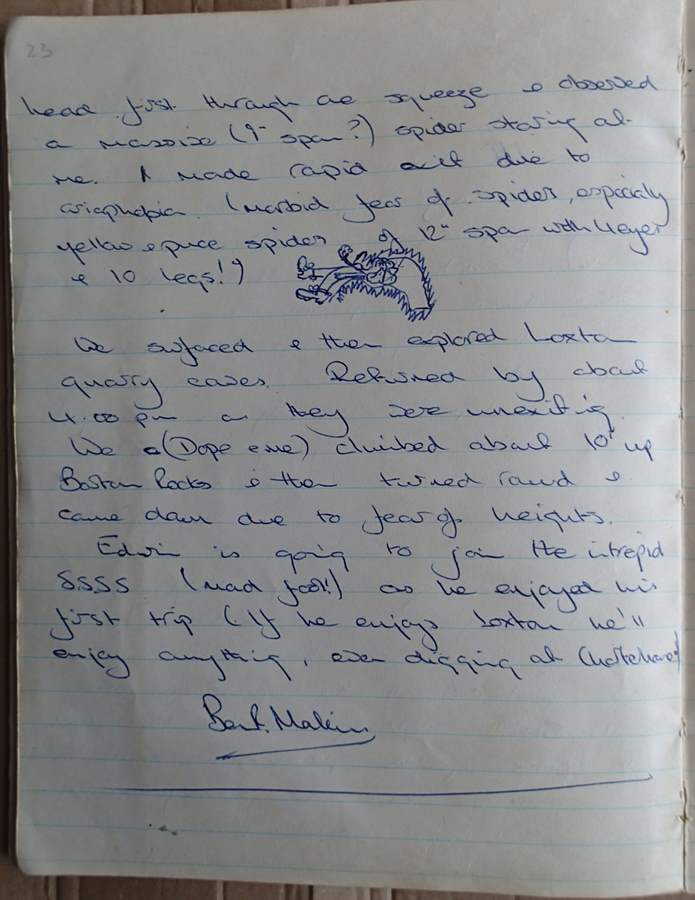 23
head first through one squeeze & observed
a massive (9" span?) spider staring at
me. I made rapid exit due to
(morbid fear of spiders, especially
yellow & puce spiders of 12" span with 4 eyes
& 10 legs!)
We surfaced & then explored Loxton
quarry caves. Returned by about
4.00 pm as they were unexiting.
We (Dope & me) climbed about 10' up
Rocks & then turned round &
came down due to fear of heights.
Edwin is going to join the intrepid
SSSS (mad fool!) as he enjoyed his
first trip (If he enjoys Loxton he'll
enjoy anything, even digging at